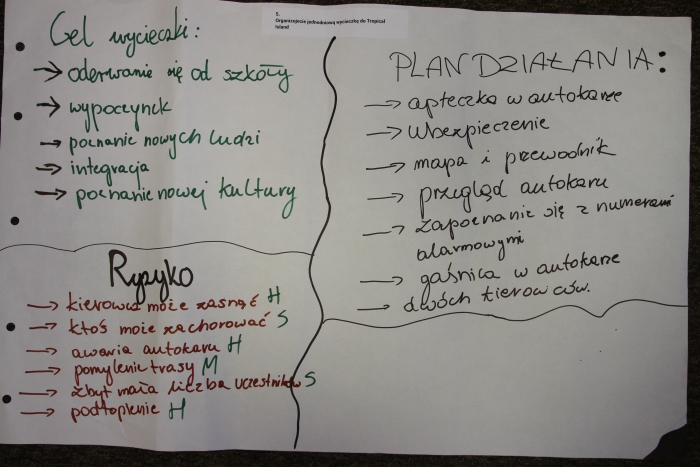 5.
Organizujecie jednodniową wycieczkę do Tropical
Island
Cel wycieczki:
→ oderwanie się od szkoły
→ wypoczynek
→ poznanie nowych ludzi
→ integracja
→ poznanie nowej kultury
Ryzyko
→ kierowca może zasnąć H
→ ktoś może zachorować S
→ awaria autokaru H
→ pomylenie trasy M
→ zbyt mała liczba uczestników S
→ podtopienie H
PLAN DZIAŁANIA:
→ apteczka w autokarze
→ ubezpieczenie
→ mapa i przewodnik
→ przegląd autokaru
→ zapoznanie się z numerami
alarmowymi
→ gaśnica w autokarze
→ dwóch kierowców.